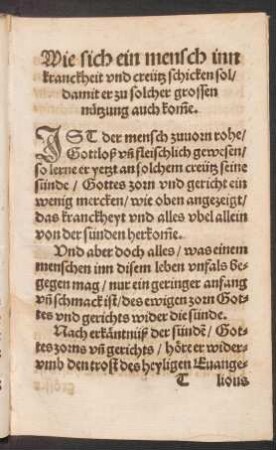 Wie sich ein mensch inn
kranckheit vnd creütz schicken sol/
damit er zu solcher grossen
nützung auch kom̃e.
IST der mensch zuuorn rohe/
Gottloß vñ fleischlich gewesen/
so lerne er yetzt an solchem creütz seine
sünde / Gottes zorn vnd gericht ein
wenig mercken / wie oben angezeigt/
das kranckheyt vnd alles vbel allein
von der sünden herkom̃e.
Vnd aber doch alles / was einem
menschen inn disem leben vnfals be-
gegen mag / nur ein geringer anfang
vñ schmack ist / des ewigen zorn Got-
tes vnd gerichts wider die sünde.
Nach erkäntnüß der sündẽ / Got-
tes zorns vñ gerichts / höre er wider-
vmb den trost des heyligen Euange-
T lions